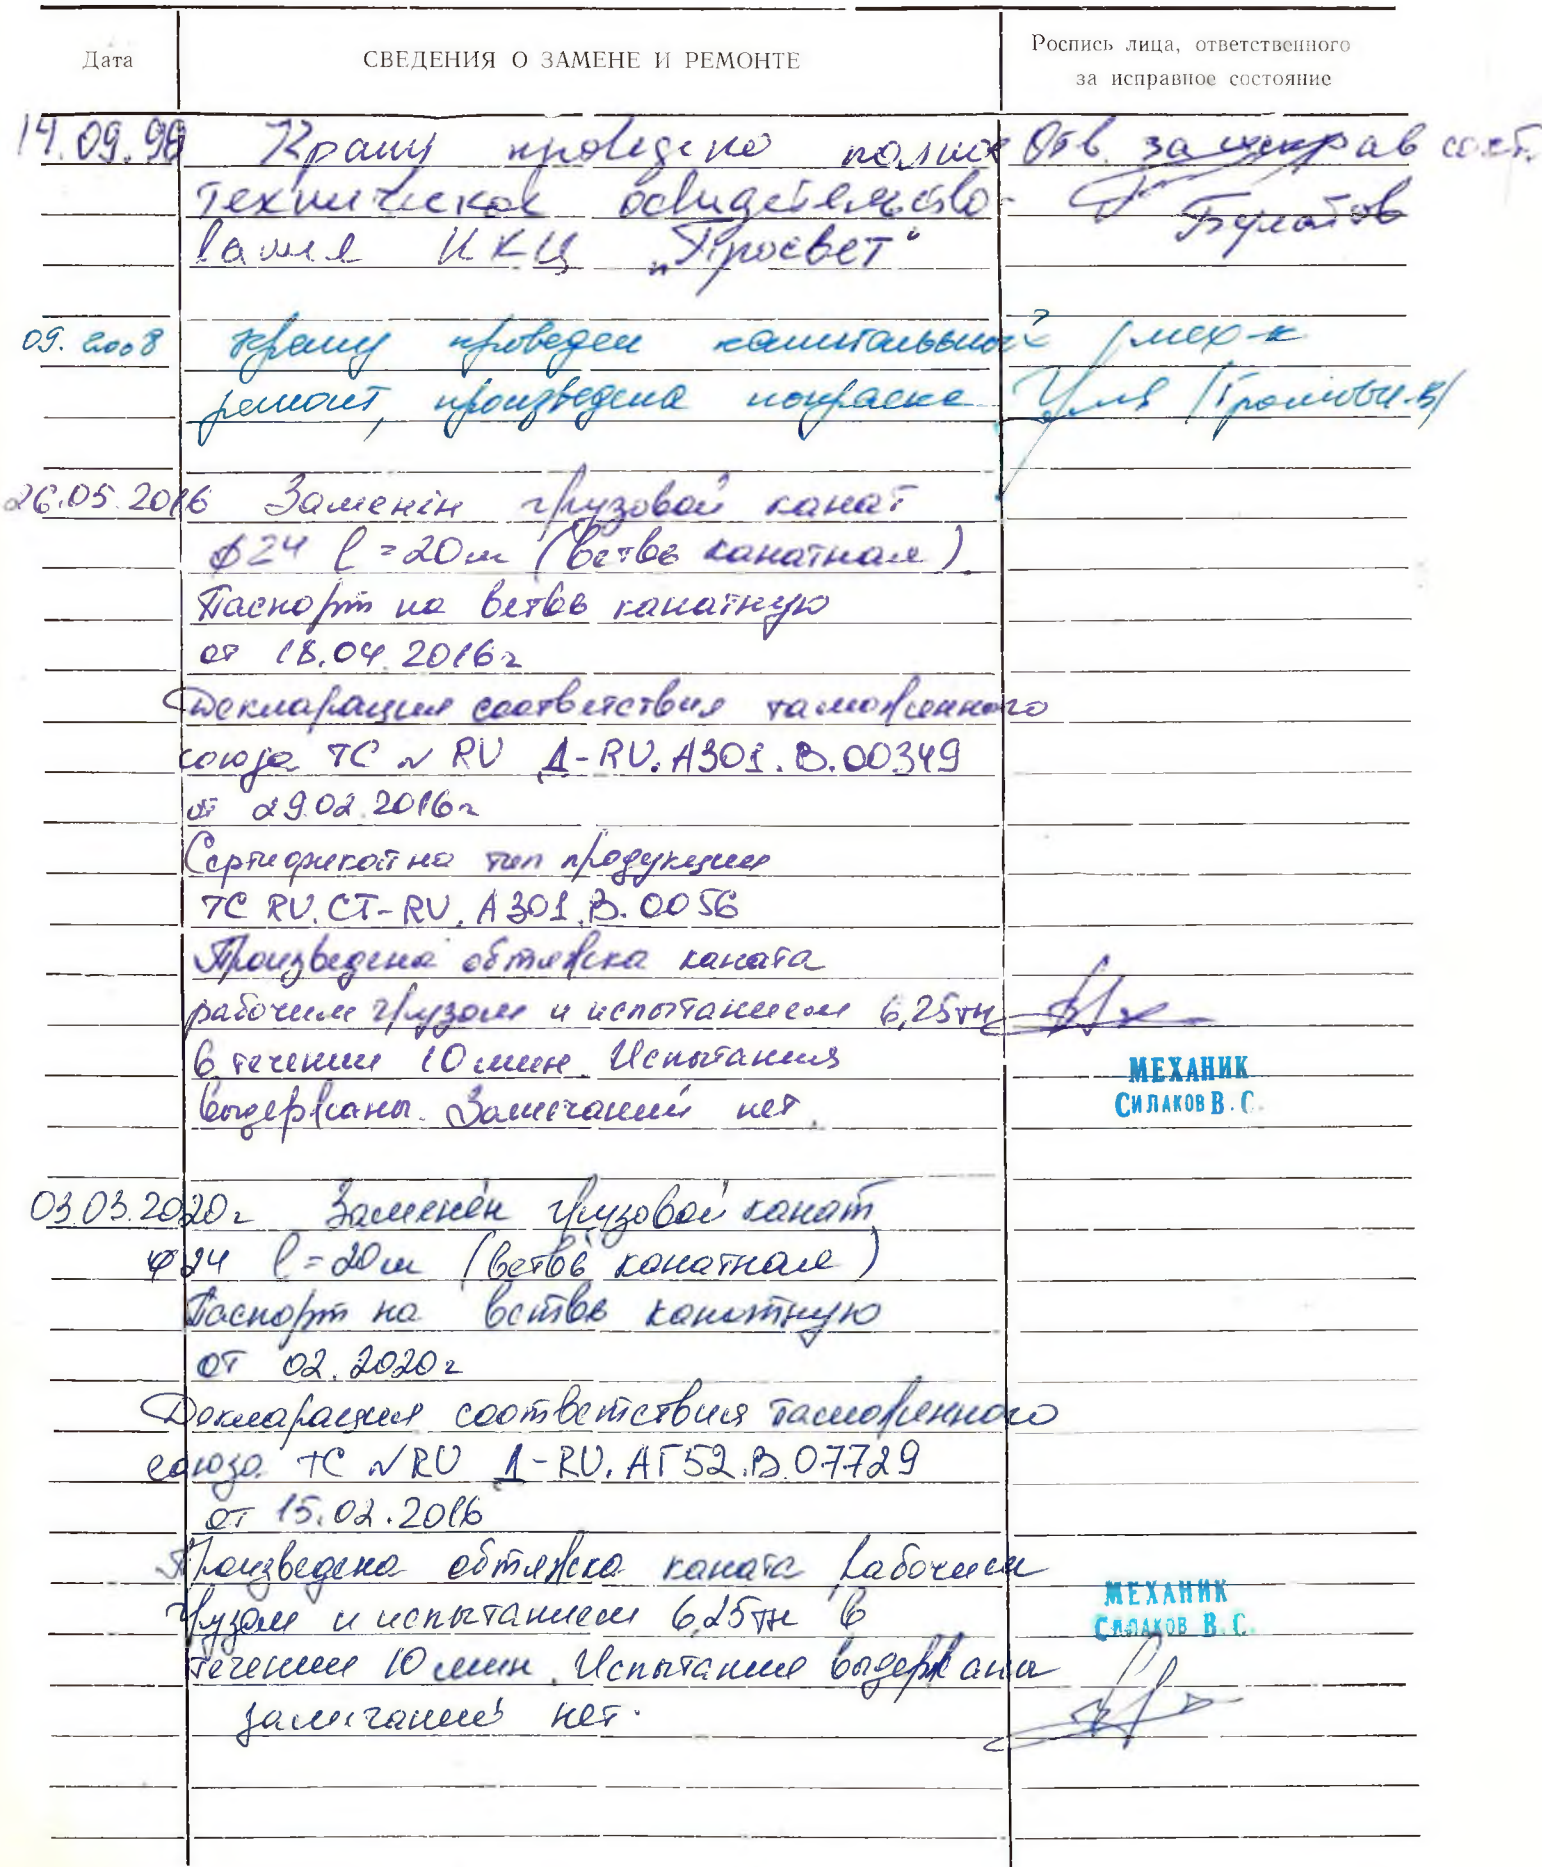 Дата
СВЕДЕНИЯ О ЗАМЕНЕ И РЕМОНТЕ
Роспись лица, ответственного
за исправное состояние
14.09.98 Крану проведено полное Отв. за исправ сост.
техническое освидетельство- Булатов
вания ИКЦ „Просвет"
09.2008 крану проведен капитальный мех-к
ремонт, произведена покраска
26.05.2016 Заменён грузовой канат
⌀24 l=20м (ветвь канатная).
Паспорт на ветвь канатную
от 18.04.2016г
Декларация соответствия таможенного
союза ТС N RU Д-RU.АЗ01.В.00349
от 29.02.2016г
Сертификат на тип продукции
ТС RU.СТ-RU.АЗ01.В.0056
Произведена обтяжка каната
рабочим грузом и испытанием 6,25тн
в течении 10 мин. Испытания
МЕХАНИК
выдержаны. Замечаний нет.
СИЛАКОВ В.С.
03.03.2020г Заменён грузовой канат
⌀24 l=20м (ветвь канатная)
Паспорт на ветвь канатную
от 02.2020г
Декларация соответствия таможенного
союза ТС N RU Д-RU.АГ52.В.07729
от 15.02.2016
Произведена обтяжка каната рабочим
МЕХАНИК
грузом и испытанием 6,25тн в
СИЛАКОВ В.С.
течении 10 мин. Испытание выдержаны
замечаний нет.